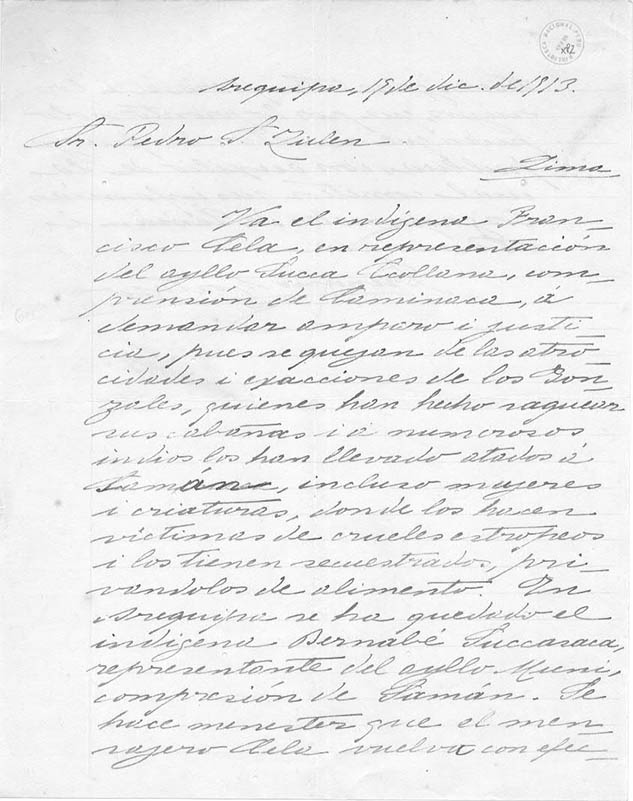 Arequipa, 19 de dic. de 1913.
Sr. Pedro S. Zulen
Lima
Va el indígena Fran-
cisco Cela, en representación
del ayllo Succa Ccollana, com-
prensión de Caminaca, á
demandar amparo i justi-
cia, pues se quejan de las atro-
cidades i exacciones de los Gon-
zales, quienes han hecho saquear
sus cabañas i a numerosos
indios los han llevado atados á
Samán, incluso mujeres
i criaturas, donde los hacen
víctimas de crueles estropeos
i los tienen secuestrados, pri-
vandolos de alimento. En
Arequipa se ha quedado el
indígena Bernabé Succasaca,
representante del ayllo Muni,
compresión de Samán. Se
hace menester que el men-
sajero Cela vuelva con efec-